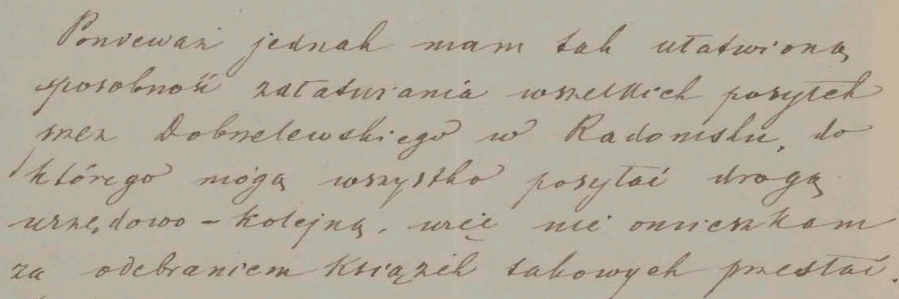 Ponieważ jednak mam tak ułatwioną
sposobność załatwiania wszelkich posyłek
przez Dobrzelewskiego w Radomsku, do
którego mogą wszystko posyłać drogą
urzędowo-kolejną, więc nie omieszkam
za odebraniem Książek takowych przesłać.